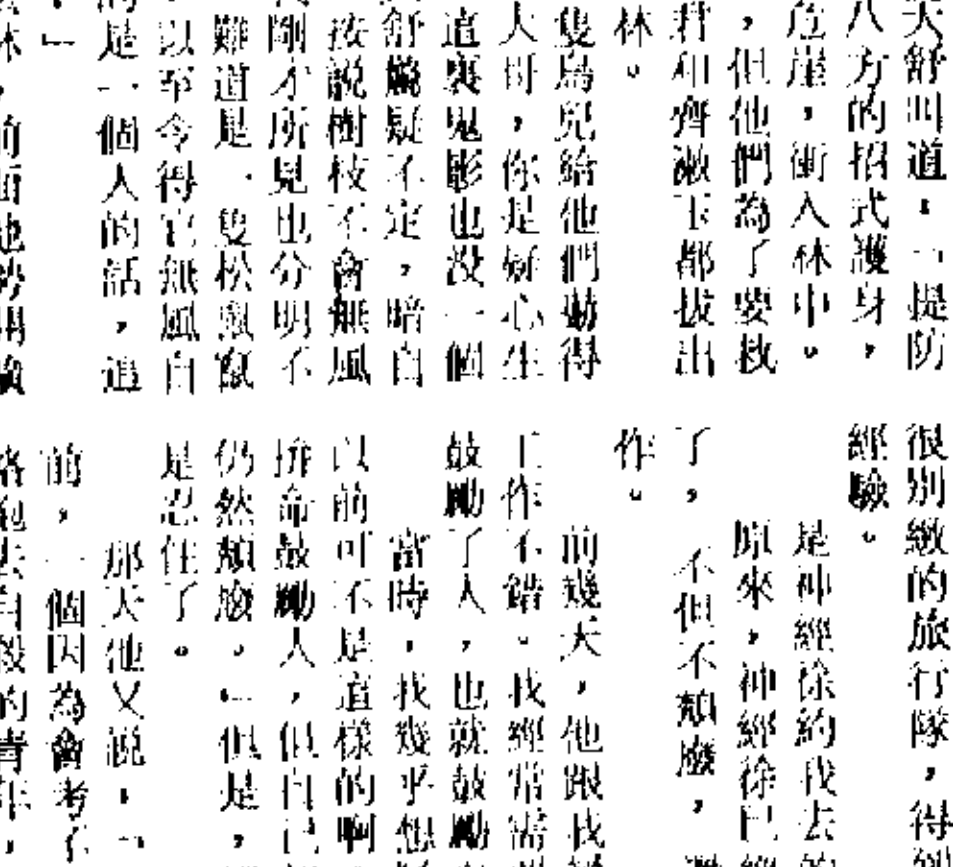 天舒叫道:「提防
八方的招式護身,
危崖,衝入林中。
,但他們為了要救
君和齊漱玉都拔出
林。
隻鳥兒給他們嚇得
大哥,你是疑心生
這裏鬼影也沒一個
舒驚疑不定,暗自
按說樹枝不會無風
剛才所見也分明不
難道是一隻松鼠竄
以至令得它無風自
的是一個人的話,追
。」
林,前面地勢開
很別緻的旅行隊,得到
經驗。
是神經徐約我去的
原來,神經徐已經
了,不但不頹廢,
作。
前幾天,他跟我
工作不錯。我經常需
鼓勵了人,也就鼓勵
當時,我幾乎想
以前可不是這樣的啊
拚命鼓勵人,但自己
仍然頹廢。」但是,
是忍住了。
那天他又說:「
前,一個因為會考不
去自殺的青年,